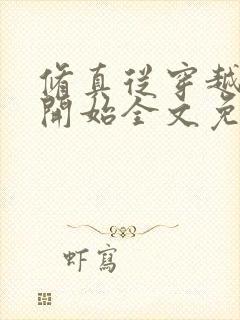 脩真從穿越
開始全文免
虾寫